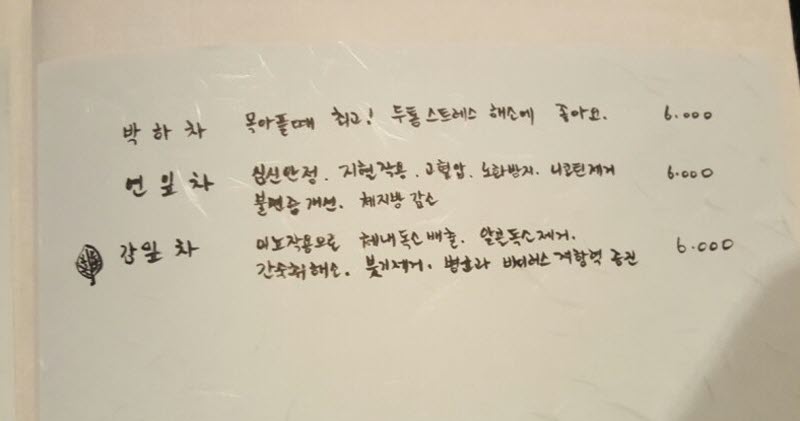 박하차 목아플때 최고! 두통 스트레스 해소에 좋아요. 6.000
연잎차 심신안정. 지혈작용. 고혈압. 노화방지. 니코틴제거 6.000
불면증개선. 체지방 감소
감잎차 이뇨작용으로 체내독소배출. 알콜독소제거. 6.000
간숙취해소. 붓기제거. 바이러스 저항력 증진